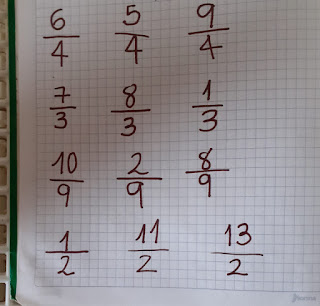 6/4 5/4 9/4
7/3 8/3 1/3
10/9 2/9 8/9
1/2 11/2 13/2